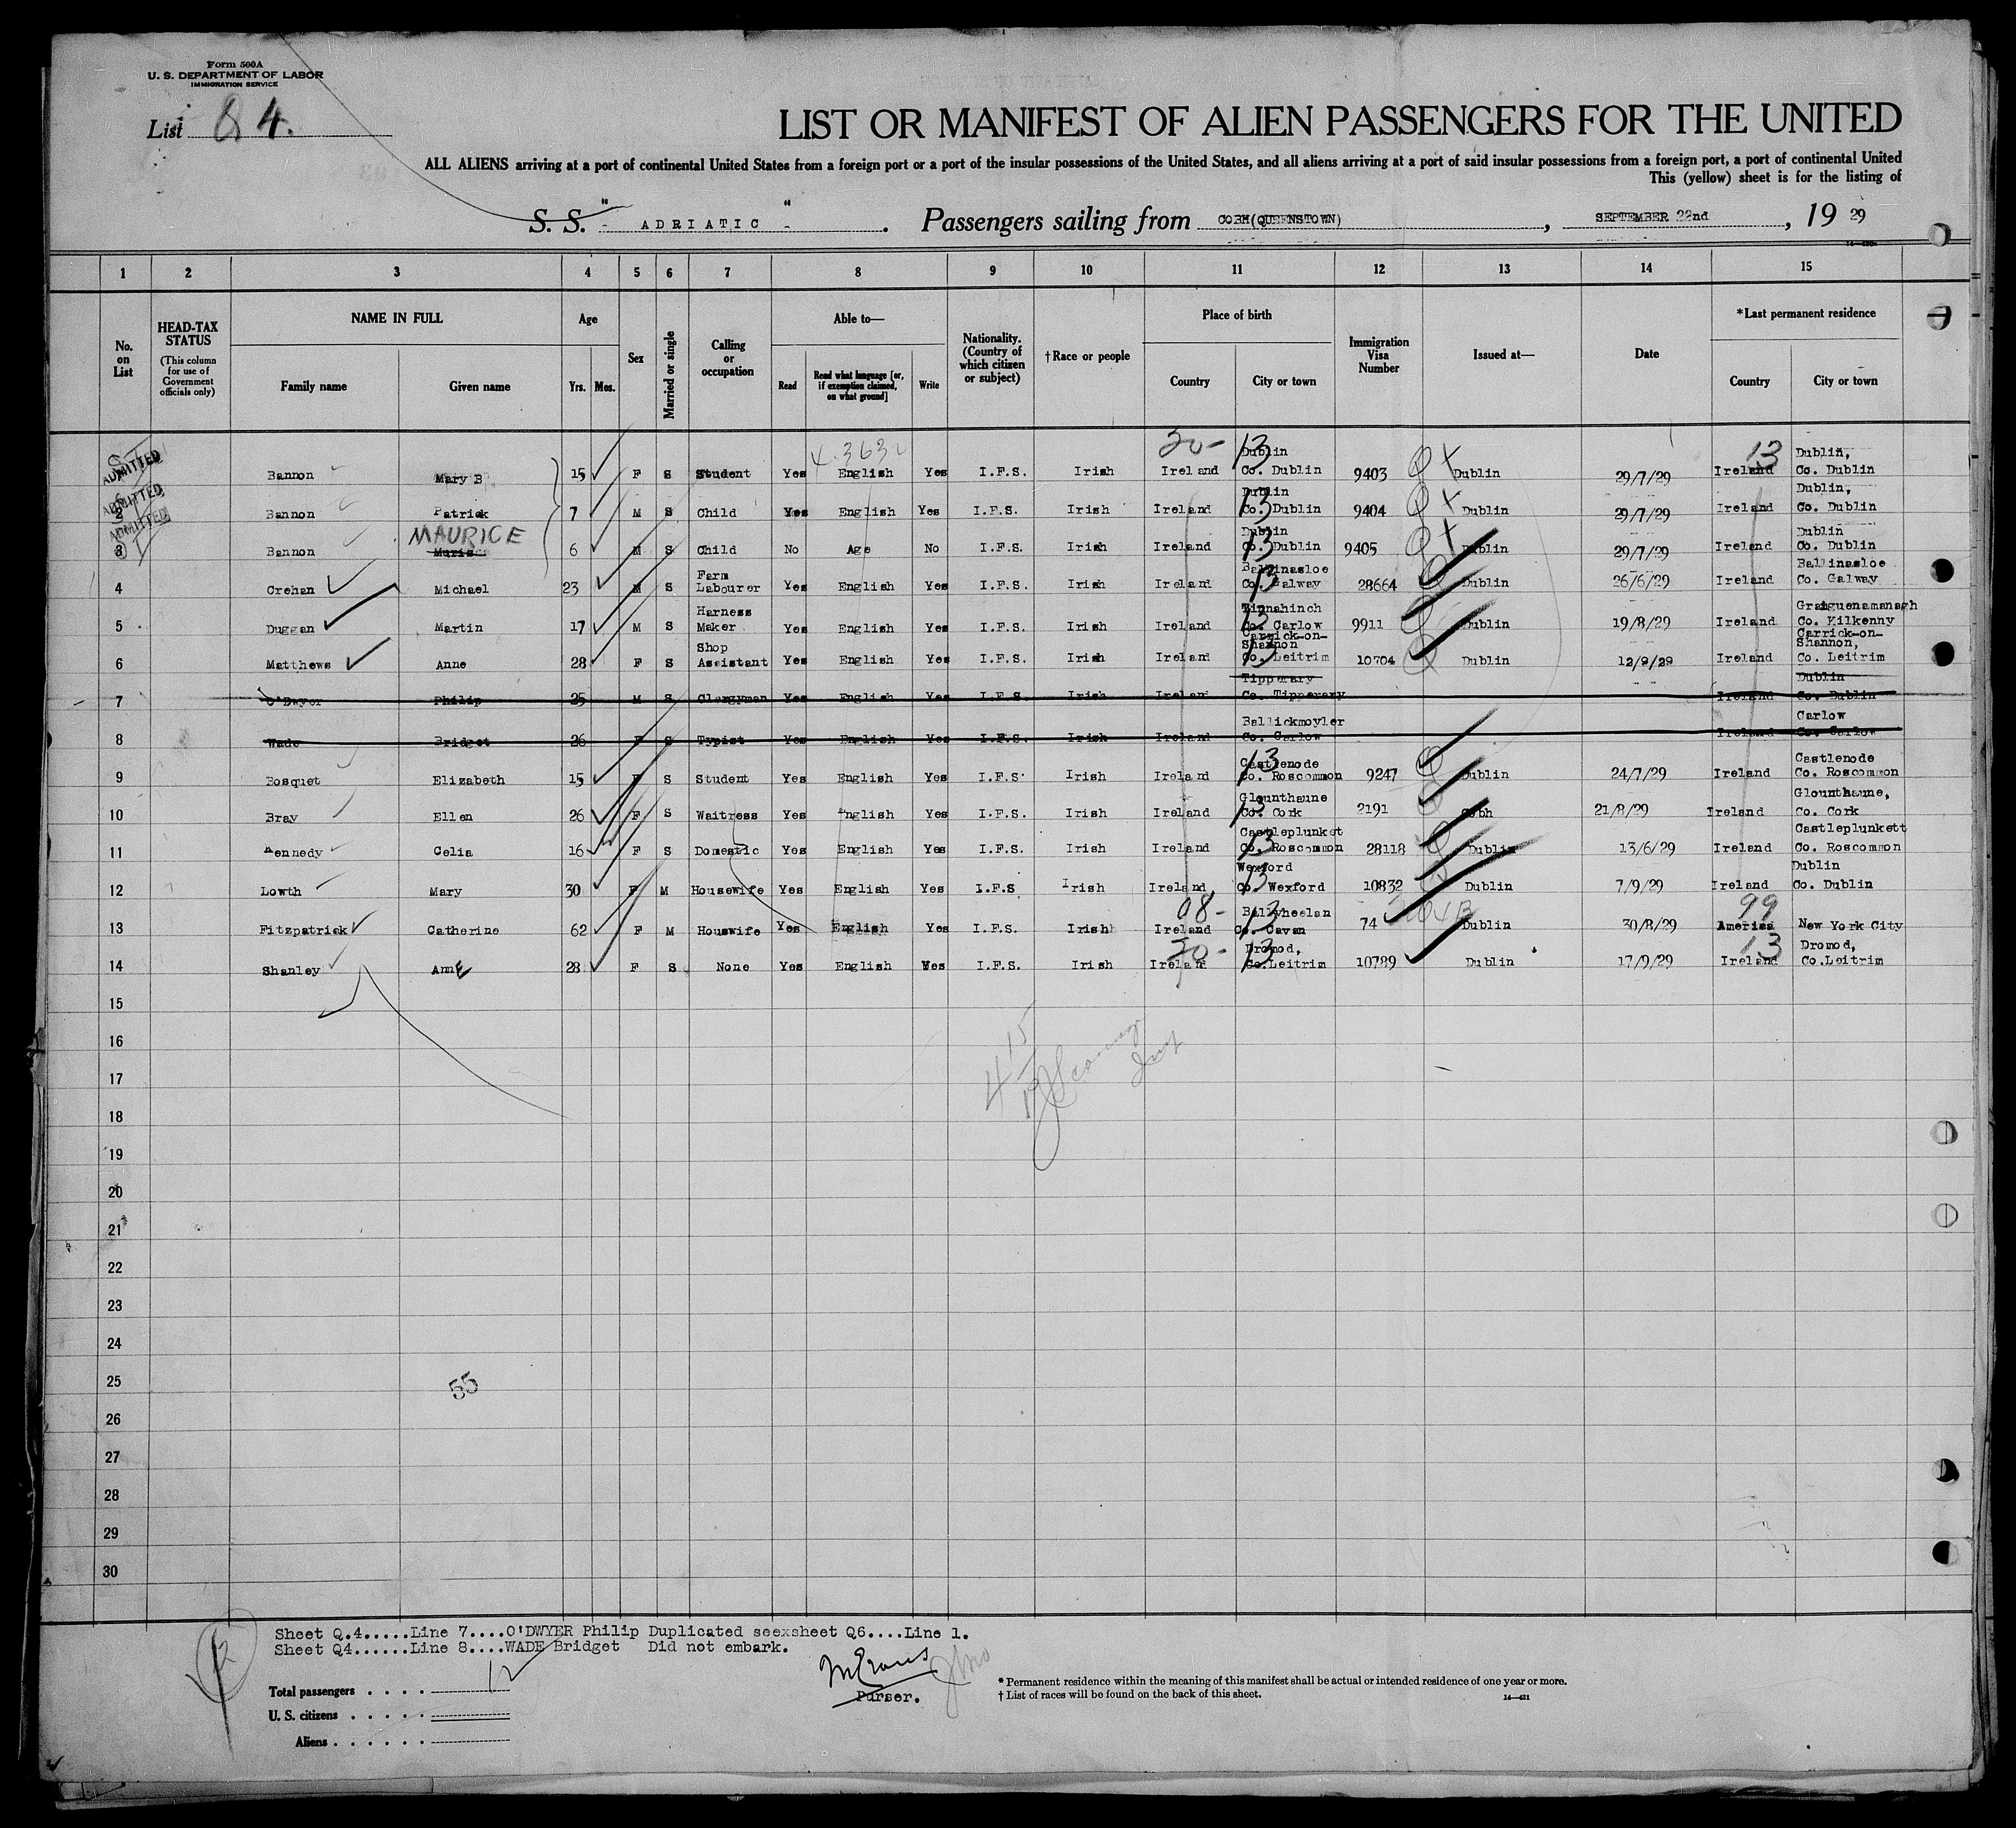 Form 500A
U. S. DEPARTMENT OF LABOR
IMMIGRATION SERVICE
List 84.
LIST OR MANIFEST OF ALIEN PASSENGERS FOR THE UNITED
ALL ALIENS arriving at a port of continental United States from a foreign port or a port of the insular possessions of the United States, and all aliens arriving at a port of said insular possessions from a foreign port, a port of continental United
This (yellow) sheet is for the listing of
S. S. " ADRIATIC " . Passengers sailing from COBH(QUEENSTOWN) , SEPTEMBER 22nd , 19 29
1 2 3 4 5 6 7 8 9 10 11 12 13 14 15
No. on List
HEAD-TAX STATUS
(This column for use of Government officials only)
NAME IN FULL
Family name Given name
Age
Yrs. Mos.
Sex
Married or single
Calling or occupation
Able to—
Read
Read what language [or, if exemption claimed, on what ground]
Write
Nationality. (Country of which citizen or subject)
†Race or people
Place of birth
Country City or town
Immigration Visa Number
Issued at—
Date
*Last permanent residence
Country City or town
4.3632 20- 13 13
ADMITTED Bannon Mary B 15 F S Student Yes English Yes I.F.S. Irish Ireland Dublin Co. Dublin 9403 Dublin 29/7/29 Ireland Dublin, Co. Dublin
ADMITTED 2 Bannon Patrick 7 M S Child Yes English Yes I.F.S. Irish Ireland Dublin 13 Co. Dublin 9404 Dublin 29/7/29 Ireland Dublin, Co. Dublin
MAURICE
ADMITTED 3 Bannon 6 M S Child No Age No I.F.S. Irish Ireland Dublin 13 Co. Dublin 9405 Dublin 29/7/29 Ireland Dublin Co. Dublin
4 Crehan Michael 23 M S Farm Labourer Yes English Yes I.F.S. Irish Ireland Ballinasloe 13 Co. Galway 28664 Dublin 26/6/29 Ireland Ballinasloe Co. Galway
5 Duggan Martin 17 M S Harness Maker Yes English Yes I.F.S. Irish Ireland Tinnahinch 13 Co. Carlow 9911 Dublin 19/8/29 Ireland Graiguenamanagh Co. Kilkenny
6 Matthews Anne 28 F S Shop Assistant Yes English Yes I.F.S. Irish Ireland Carrick-on-Shannon 13 Co. Leitrim 10704 Dublin 12/9/29 Ireland Carrick-on-Shannon, Co. Leitrim
7 O'Dwyer Philip 25 M S Clergyman Yes English Yes I.F.S. Irish Ireland Tipperary Co. Tipperary Ireland Dublin Co. Dublin
8 Wade Bridget 26 F S Typist Yes English Yes I.F.S. Irish Ireland Ballickmoyler Co. Carlow Ireland Carlow Co. Carlow
9 Bosquet Elizabeth 15 F S Student Yes English Yes I.F.S. Irish Ireland Castlenode 13 Co. Roscommon 9247 Dublin 24/7/29 Ireland Castlenode Co. Roscommon
10 Bray Ellen 26 F S Waitress Yes English Yes I.F.S. Irish Ireland Glounthaune 13 Co. Cork 2191 Cobh 21/8/29 Ireland Glounthaune, Co. Cork
11 Kennedy Celia 16 F S Domestic Yes English Yes I.F.S. Irish Ireland Castleplunket 13 Co. Roscommon 28118 Dublin 13/6/29 Ireland Castleplunkett Co. Roscommon
12 Lowth Mary 30 F M Housewife Yes English Yes I.F.S Irish Ireland, Wexford 13 Co. Wexford 10832 Dublin 7/9/29 Ireland Dublin Co. Dublin
08- 99
13 Fitzpatrick Catherine 62 F M Houswife Yes English Yes I.F.S. Irish Ireland Ballyheelan 13 Co. Cavan 74 Dublin 30/8/29 America New York City
20- 13
14 Shanley AnnE 28 F S None Yes English Yes I.F.S. Irish Ireland Dromod, 13 Co.Leitrim 10789 Dublin 17/9/29 Ireland Dromod, Co.Leitrim
15
16
17
18
19
20
21
22
23
24
25
55
26
27
28
29
30
Sheet Q.4.....Line 7....O'DWYER Philip Duplicated seexsheet Q6....Line 1.
Sheet Q4......Line 8....WADE Bridget Did not embark.
Total passengers . . . . 12
U. S. citizens . . . . .
Aliens . . . . . .
Purser.
* Permanent residence within the meaning of this manifest shall be actual or intended residence of one year or more.
† List of races will be found on the back of this sheet.
14—431